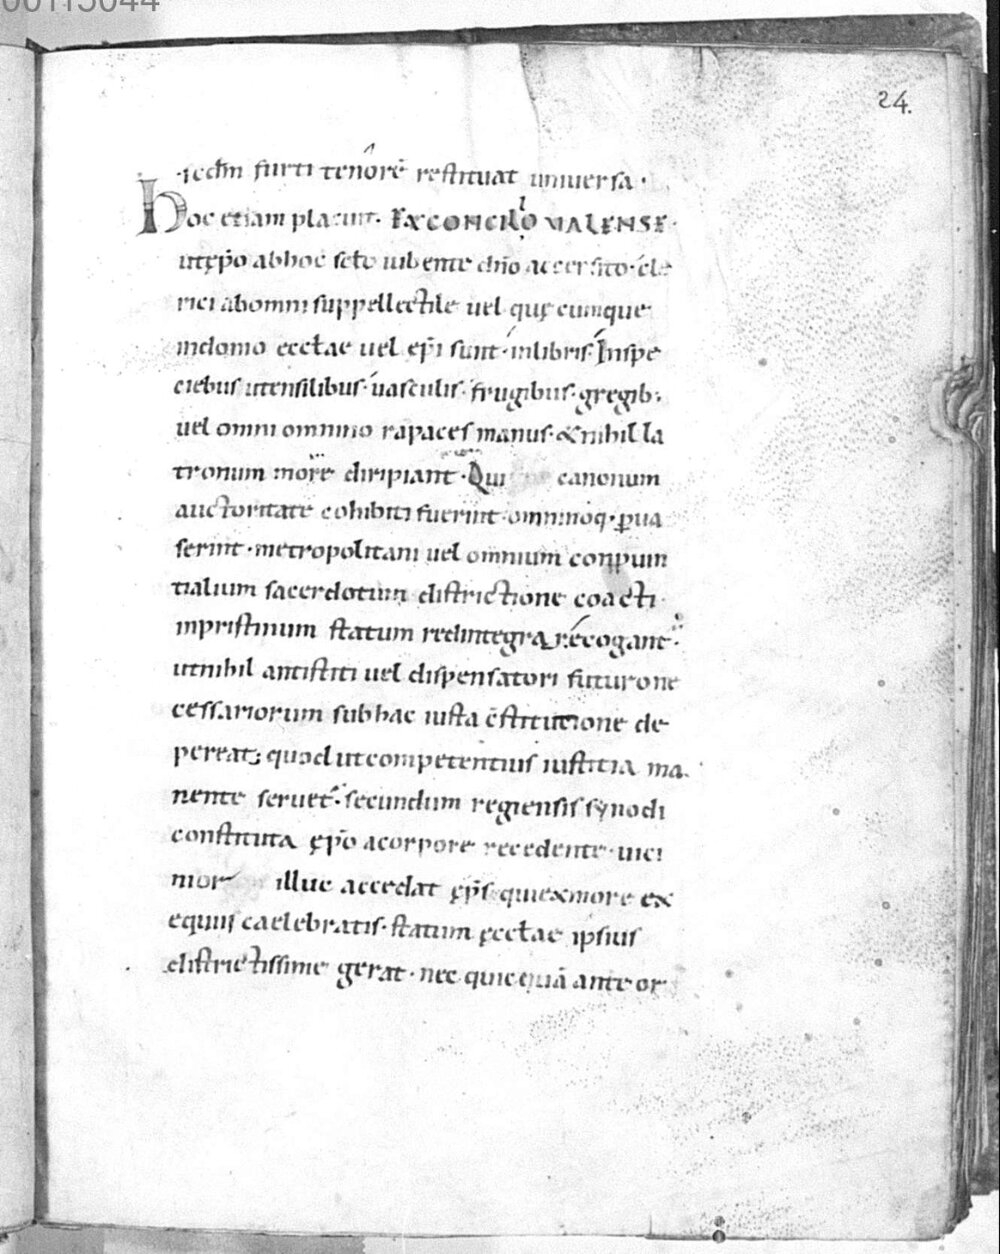 00115044
24.
iectim furti tenore restituat uniuersa·
hoc etiam placuit· EX CONCILIO VALENSE·
ut ep̄o ab hoc sc̄lo iubente dn̄o accersito· cle
rici ab omni suppellectile uel quę cumque
in domo eccłae uel ep̄i sunt· in libris· In spe
ciebus utensilibus· uasculis· frugibus· gregib;
uel omni omnino rapaces manus· & nihil la
tronum more diripiant· Qui canonum
auctoritate cohibiti fuerint· omninoq· ꝑua
serint· metropolitani uel omnium conpuin
tialium sacerdotum districtione coacti·
in pristinum statum redintegra recogant·
ut nihil antistiti uel dispensatori futuro ne
cessariorum sub hac iusta c̄stitutione de
pereat; quod ut competentius iustitia ma
nente seruet· secundum regiensis synodi
constituta ep̄o a corpore recedente· uici
nior illuc accedat ep̄s· qui ex more ex
equiis caelebratis· statum ęccłae ipsius
districtissime gerat· nec quicquā ante or